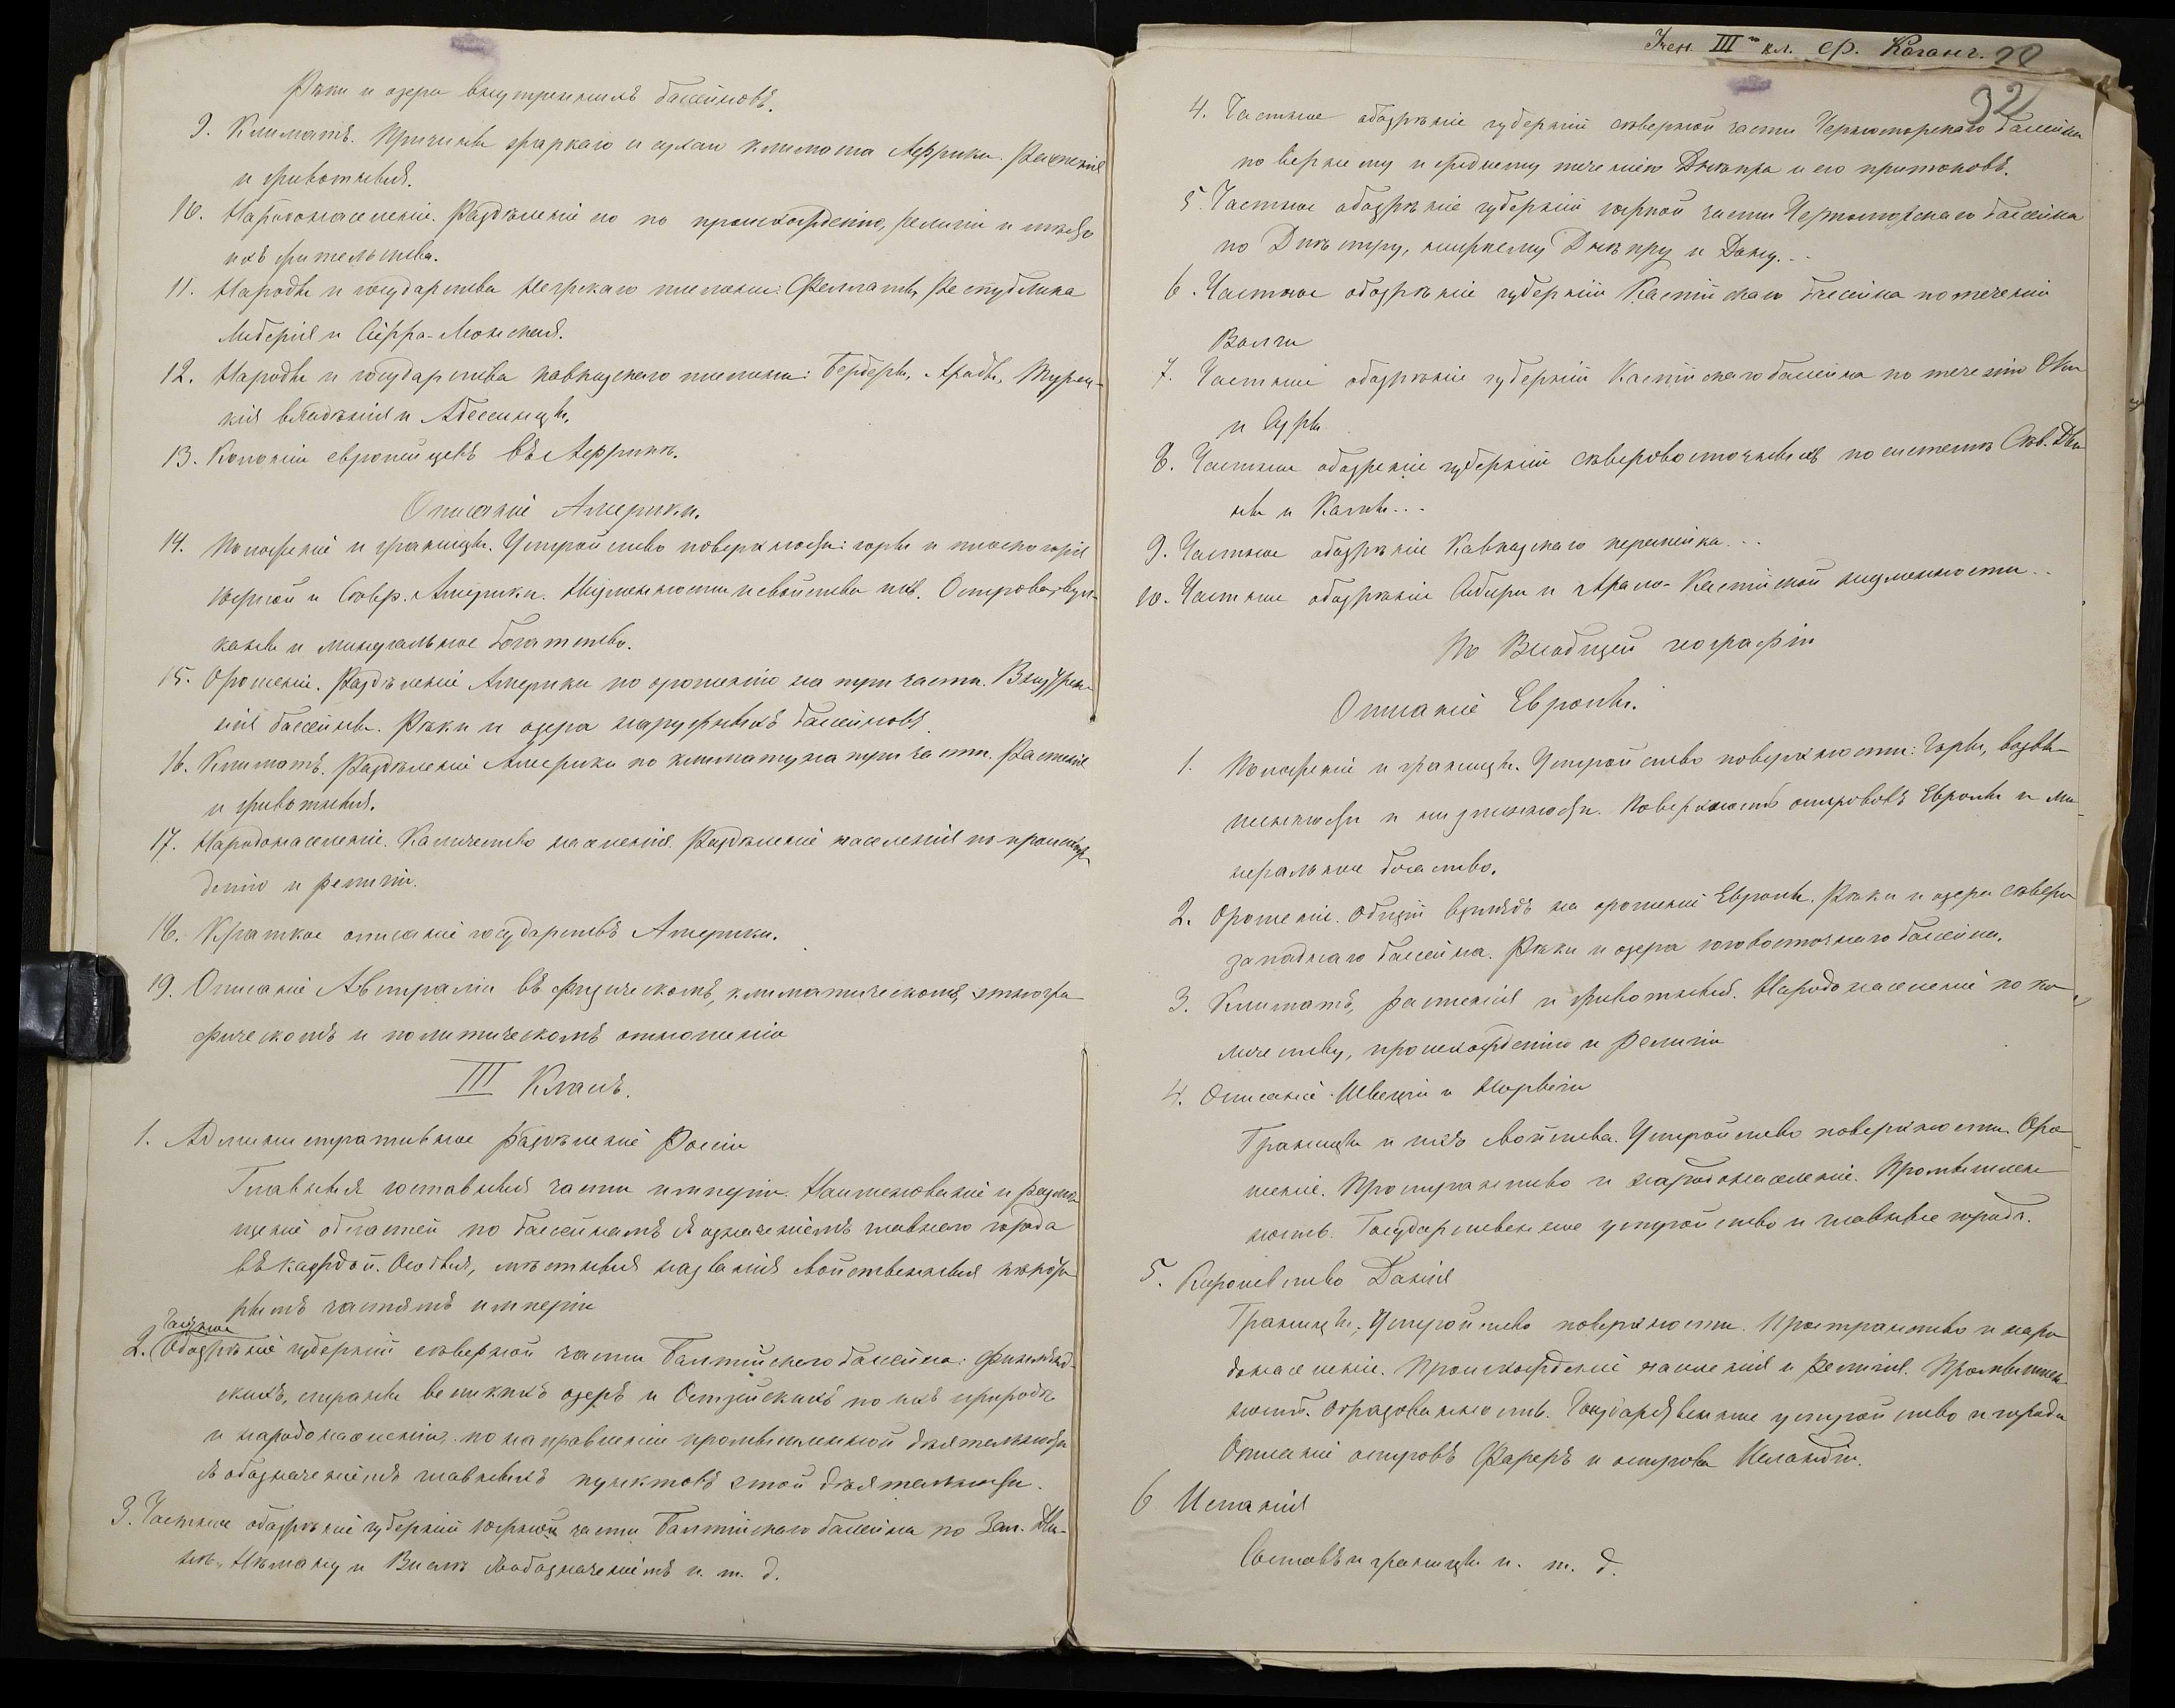 Рѣки и озера внутреннихъ бассейновъ.
9. Климатъ. Причины жаркаго и сухаго климата Африки. Растенія
и животныя.
10. Народонаселеніе. Раздѣленіе по происхожденію, религіи и мѣсту
ихъ жительства.
11. Народы и государства негрскаго племени: Феллаты, Республика
Либерія и Сіерра-Леонская.
12. Народы и государства кавказскаго племени: Берберы, Арабы, Турец-
кія владѣнія и Абессинцы.
13. Колоніи европейцевъ въ Африкѣ.
Описаніе Америки.
14. Положеніе и границы. Устройство поверхности: горы и плоскогорія
Южной и Сѣвер. Америки. Низменности и свойства ихъ. Острова, вул-
каны и минеральное богатство.
15. Орошеніе. Раздѣленіе Америки по орошенію на три части. Внутрен-
нія бассейны. Рѣки и озера наружныхъ бассейновъ.
16. Климатъ. Раздѣленіе Америки по климату на три части. Растенія
и животныя.
17. Народонаселеніе. Количество населенія. Раздѣленіе населенія по происхож-
денію и религіи.
18. Краткое описаніе государствъ Америки.
19. Описаніе Австраліи въ физическомъ, климатическомъ, этногра-
фическомъ и политическомъ отношеніи
III Классъ.
1. Административное раздѣленіе Россіи
Главныя составныя части имперіи. Наименованіе и размѣ-
щеніе областей по бассейнамъ съ означеніемъ главнаго города
въ каждой. Особыя, мѣстныя названія свойственныя нѣкото-
рымъ частямъ имперіи
Частное
2. Обозрѣніе губерній сѣверной части Балтійскаго бассейна: Финлянд-
скихъ, страны великихъ озеръ и Остзейскихъ по ихъ природѣ
и народонаселенію, по направленію промышленной дѣятельности
съ обозначеніемъ главныхъ пунктовъ этой дѣятельности.
3. Частное обозрѣніе губерній южной части Балтійскаго бассейна по Зап. Дви-
нѣ, Нѣману и Вислѣ съ обозначеніемъ и. т. д.
Учен. III го кл. Ср. Коганъ.
32
4. Частное обозрѣніе губерній сѣверной части Черноморскаго бассейна
по верхнему и среднему теченію Днѣпра и его притоковъ.
5. Частное обозрѣніе губерній южной части Черноморскаго бассейна
по Днѣстру, нижнему Днѣпру и Дону...
6. Частное обозрѣніе губерній Каспійскаго бассейна по теченію
Волги
7. Частное обозрѣніе губерній Каспійскаго бассейна по теченію Оки
и Суры
8. Частное обозреніе губерній сѣверовосточныхъ по системѣ Сѣв. Дви-
ны и Камы...
9. Частное обозрѣніе Кавказскаго перешейка...
10. Частное обозрѣніе Сибири и Арало-Каспійской низменности..
По Всеобщей географіи
Описаніе Европы.
1. Положеніе и границы. Устройство поверхности: Горы, возвы-
шенности и низменности. Поверхность острововъ Европы и ми-
неральное богаство.
2. Орошеніе. Общій взглядъ на орошеніе Европы. Рѣки и озера сѣверо
западнаго бассейна. Рѣки и озера юговосточнаго бассейна.
3. Климатъ, растенія и животныя. Народонаселеніе по ко-
личеству, происхожденію и религіи
4. Описаніе Швеціи и Норвегіи
Границы и ихъ свойства. Устройство поверхности. Оро-
шеніе. Пространство и народонаселеніе. Промышлен-
ность. Государственное устройство и главные города.
5. Королевство Данія
Границы, Устройство поверхности. Пространство и наро-
донаселеніе. Происхожденіе населенія и Религія. Промышлен-
ность. Образованность. Государственное устройство и города
Описаніе острововъ Фареръ и острова Исландіи.
6 Испанія
Составъ и границы и. т. д.